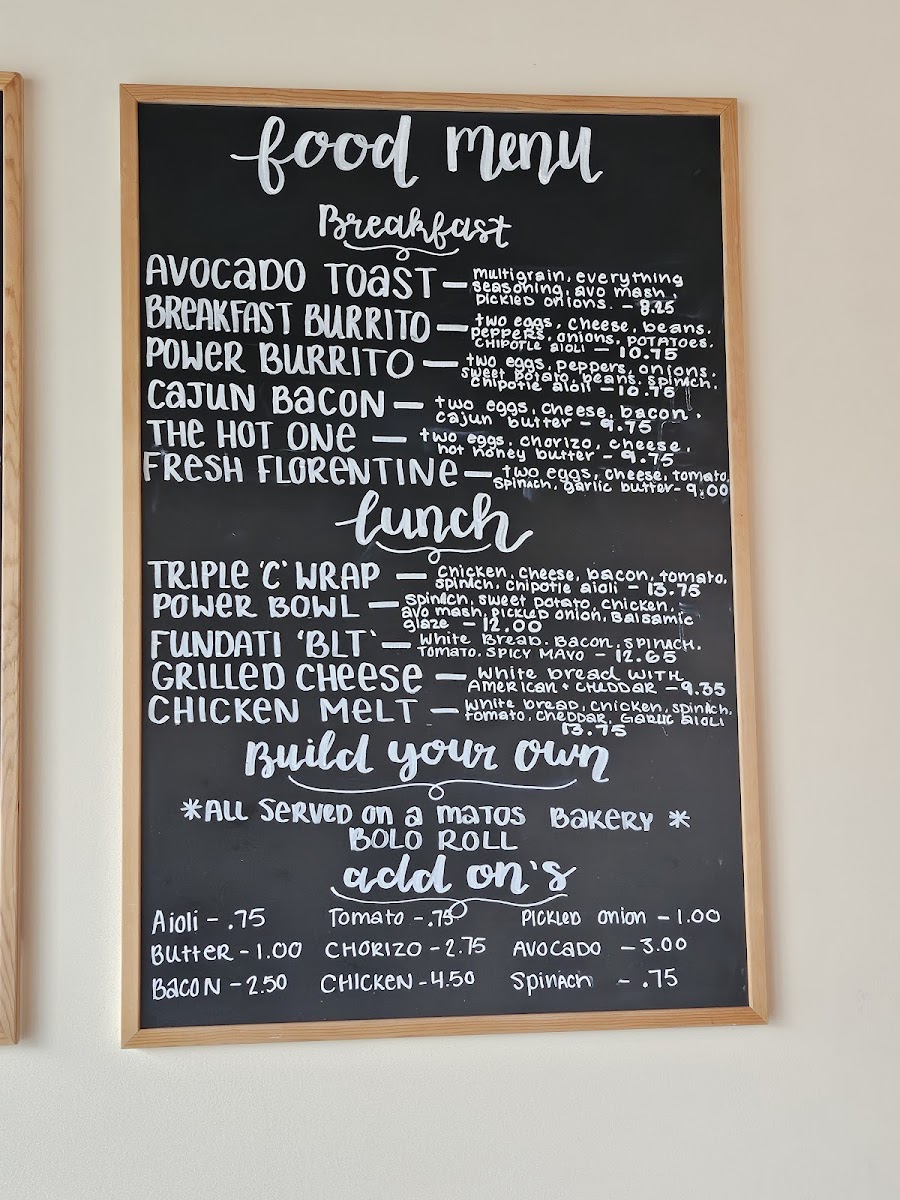 food menu
Breakfast
AVOCADO TOAST — multigrain, everything
seasoning, avo mash,
pickled onions. - 8.25
BREAKFAST BURRITO — two eggs, cheese, beans.
peppers, onions, potatoes.
chipotle aioli — 10.75
POWER BURRITO — two eggs, peppers, onions.
sweet potato, beans, spinach.
chipotle aioli - 10.75
CAJUN BACON — two eggs, cheese, bacon.
cajun butter - 9.75
THE HOT ONE — two eggs, chorizo, cheese.
hot honey butter - 9.75
FRESH FLORENTINE — two eggs, cheese, tomato,
spinach, garlic butter - 9.00
lunch
TRIPLE 'C' WRAP — chicken, cheese, bacon, tomato,
spinach, chipotle aioli - 13.75
POWER BOWL — spinach, sweet potato, chicken,
avo mash, pickled onion, Balsamic
glaze - 12.00
FUNDATI 'BLT' — White Bread. Bacon, SPINACH.
TOMATO, SPICY MAYO - 12.65
GRILLED CHEESE — White bread WITH
AMERICAN + CHEDDAR - 9.35
CHICKEN MELT — White bread, chicken, spinach,
tomato, CHEDDAR, GARLIC AIOLI
13.75
Build your own
*ALL SERVED on a MATOS BAKERY *
BOLO ROLL
add on's
Aioli - .75 Tomato - .75 PICKLED onion - 1.00
BUTTER - 1.00 CHORIZO - 2.75 AVOCADO - 3.00
BACON - 2.50 CHICKEN - 4.50 Spinach - .75